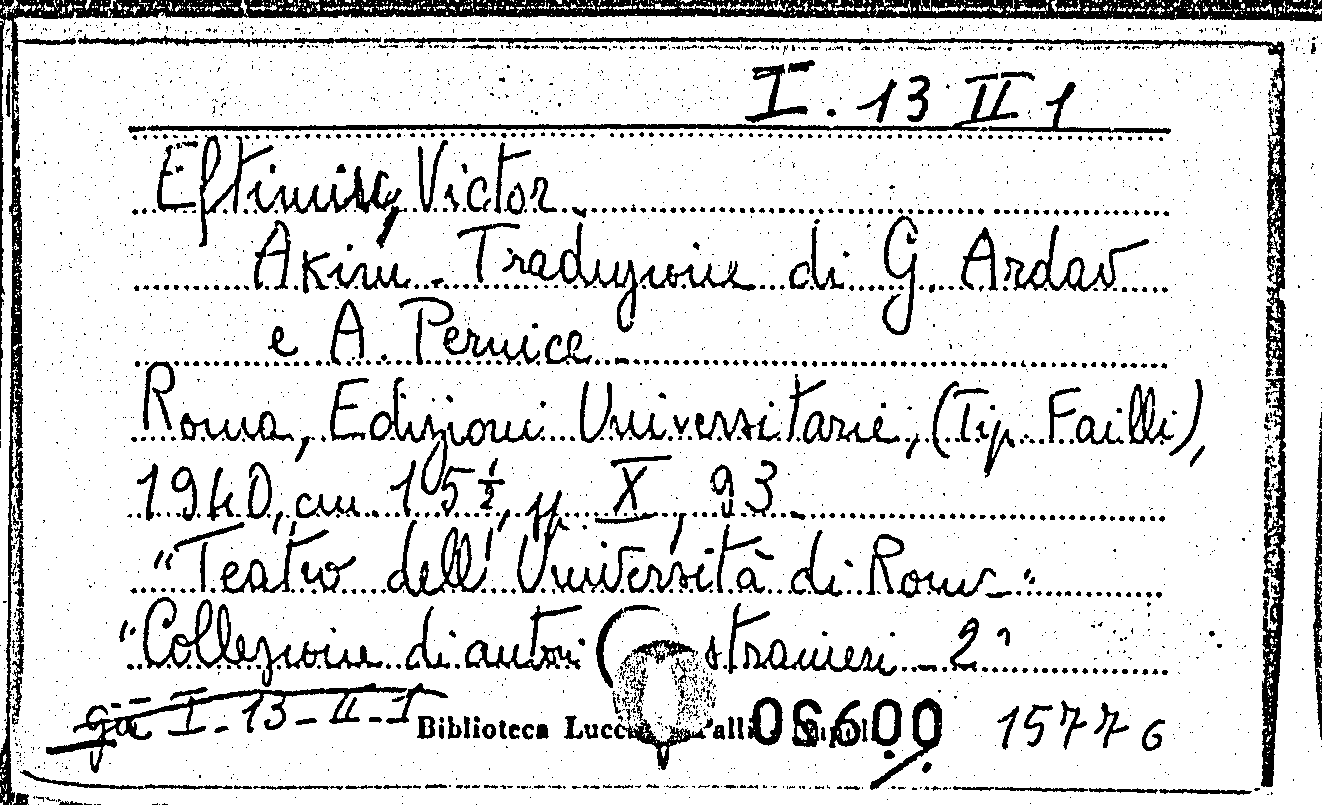 I. 13 II 1
Eftimiu, Victor.
Akim - Traduzione di G. Ardav
e A. Pernice -
Roma, Edizioni Universitarie, (Tip. Failli),
1940, cm. 15 ½, pp. X, 93 -
"Teatro dell'Università di Roma"
"Collezione di autori stranieri - 2"
già I - 13 - II - 1
Biblioteca 15776